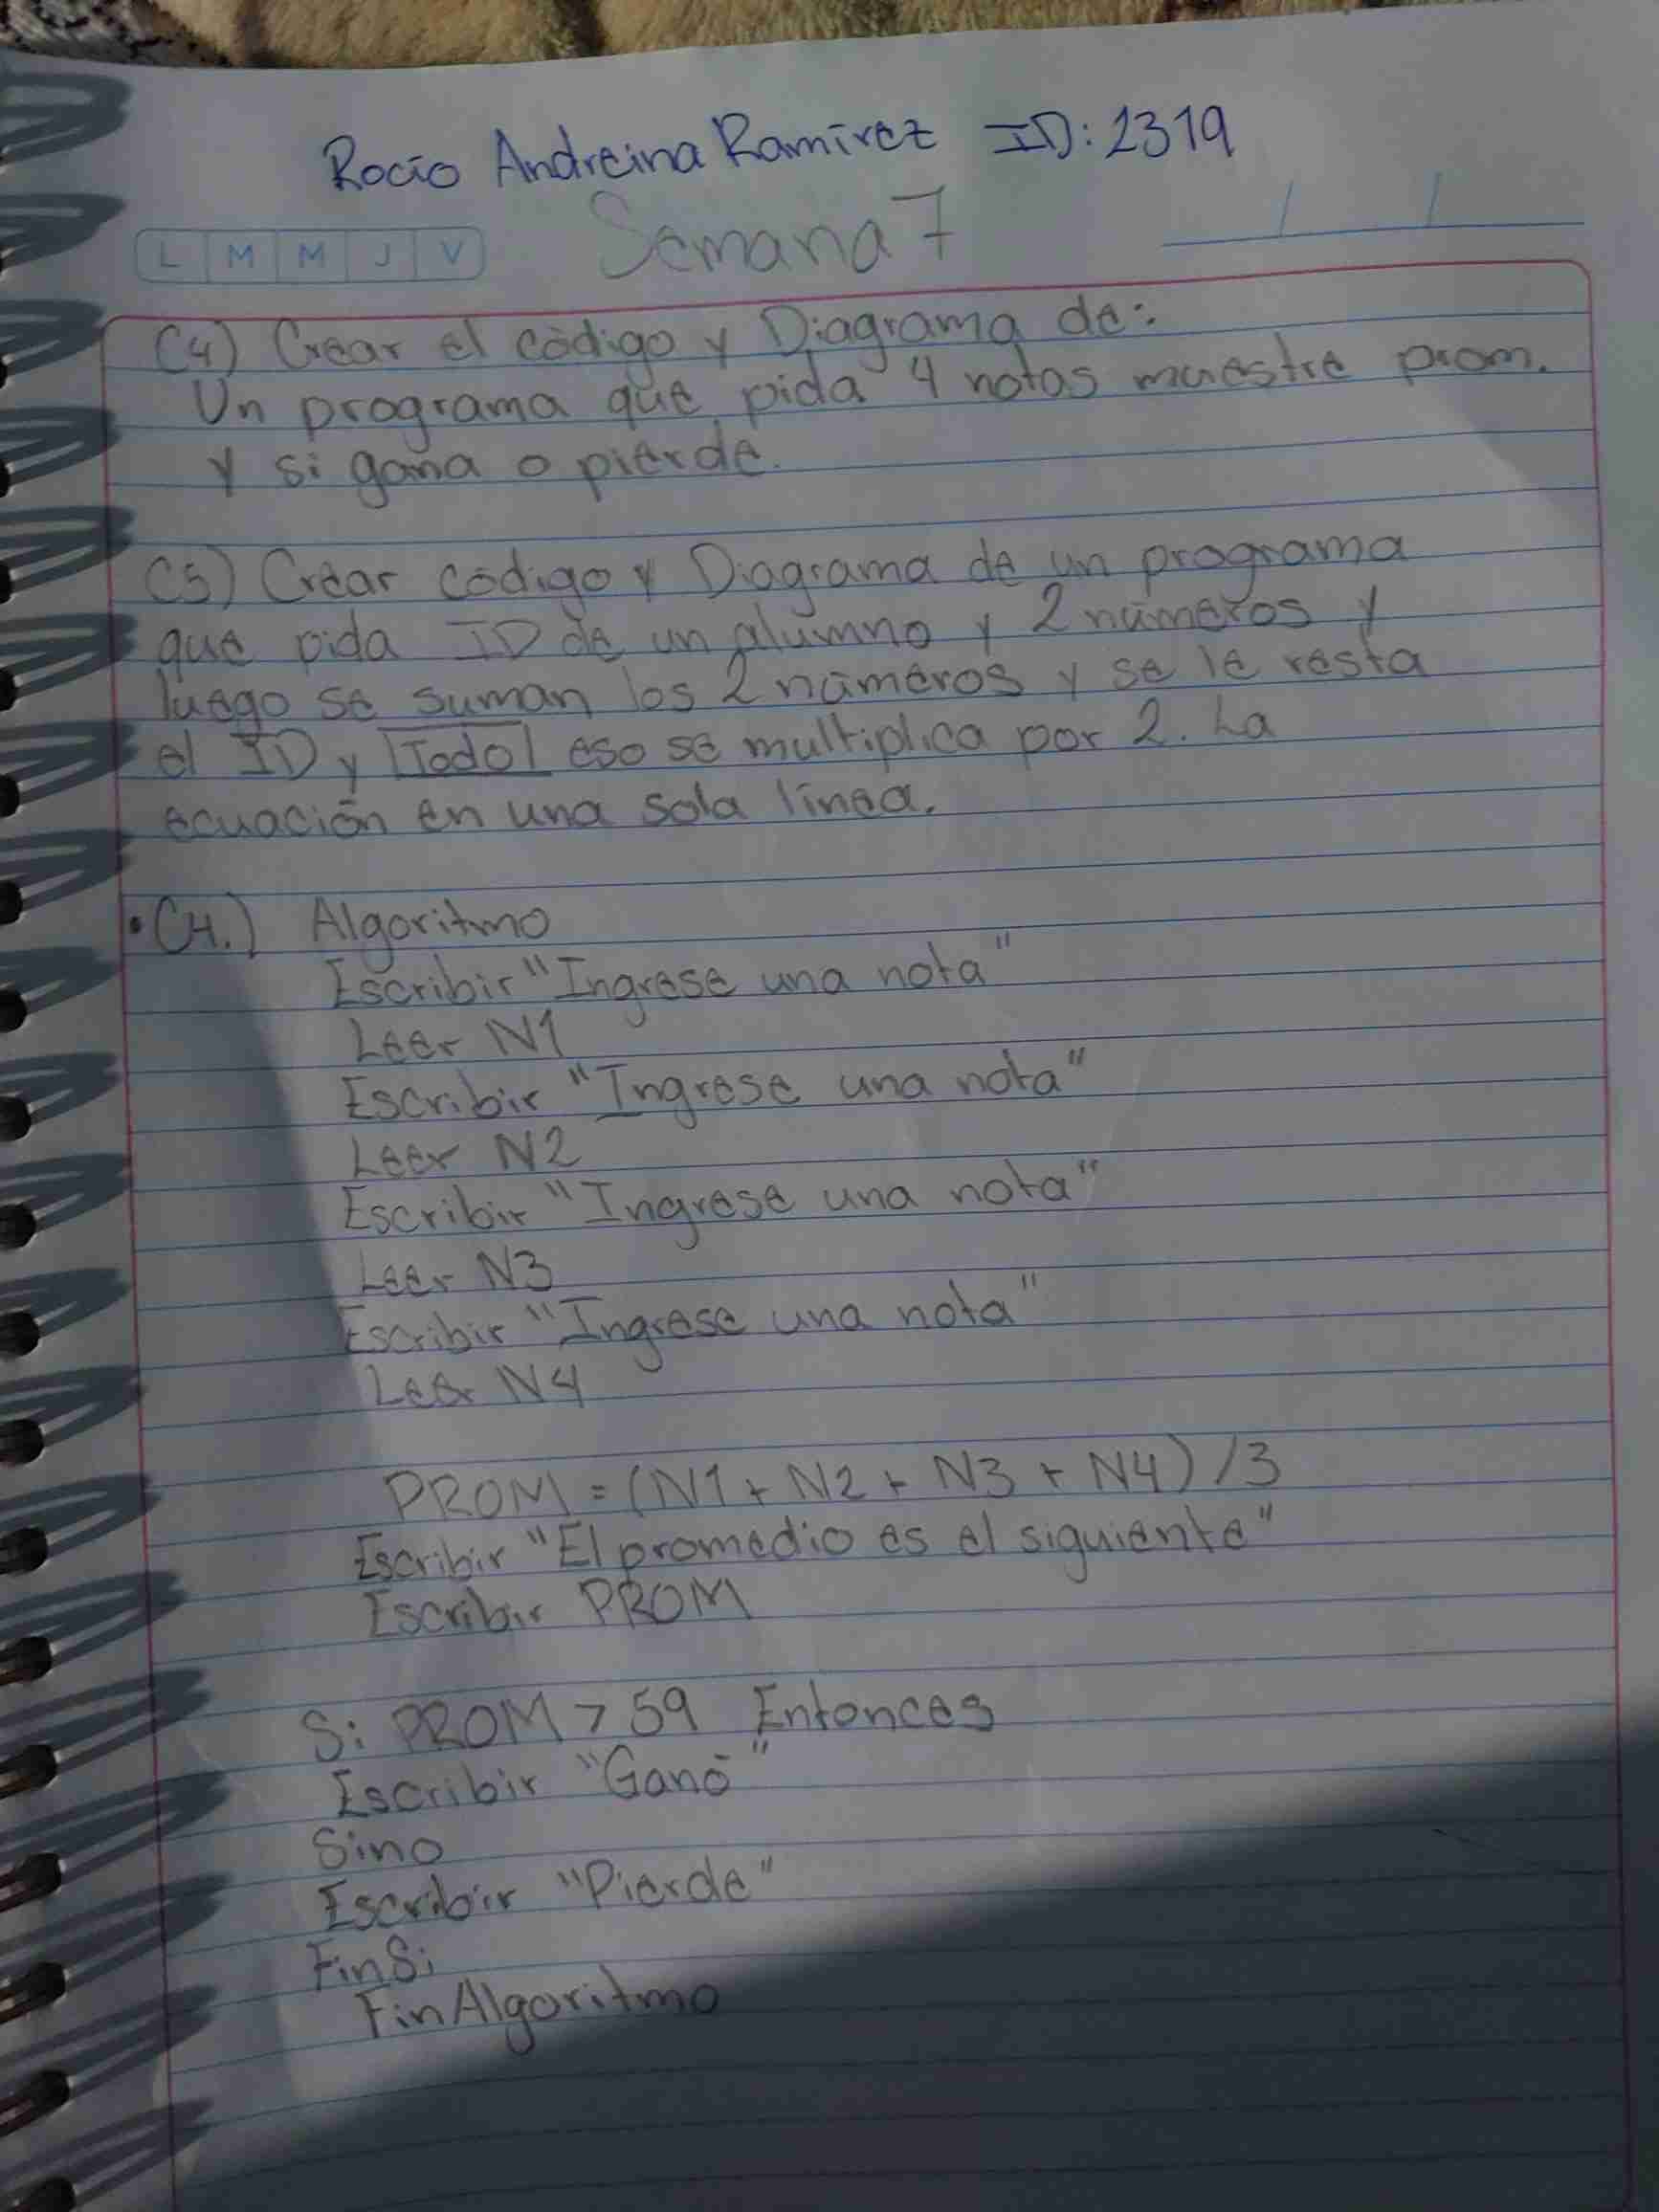 Rocío Andreina Ramírez ID: 2319
Semana 7
L M M J V
C4) Crear el código y Diagrama de:
Un programa que pida 4 notas muestre prom.
y si gana o pierde.
C5) Crear código y Diagrama de un programa
que pida ID de un alumno y 2 números y
luego se suman los 2 números y se le resta
el ID y Todo eso se multiplica por 2. La
ecuación en una sola línea.
• C4.) Algoritmo
Escribir "Ingrese una nota"
Leer N1
Escribir "Ingrese una nota"
Leer N2
Escribir "Ingrese una nota"
Leer N3
Escribir "Ingrese una nota"
Leer N4
PROM = (N1 + N2 + N3 + N4) /3
Escribir "El promedio es el siguiente"
Escribir PROM
Si PROM > 59 Entonces
Escribir "Ganó"
Sino
Escribir "Pierde"
FinSi
FinAlgoritmo